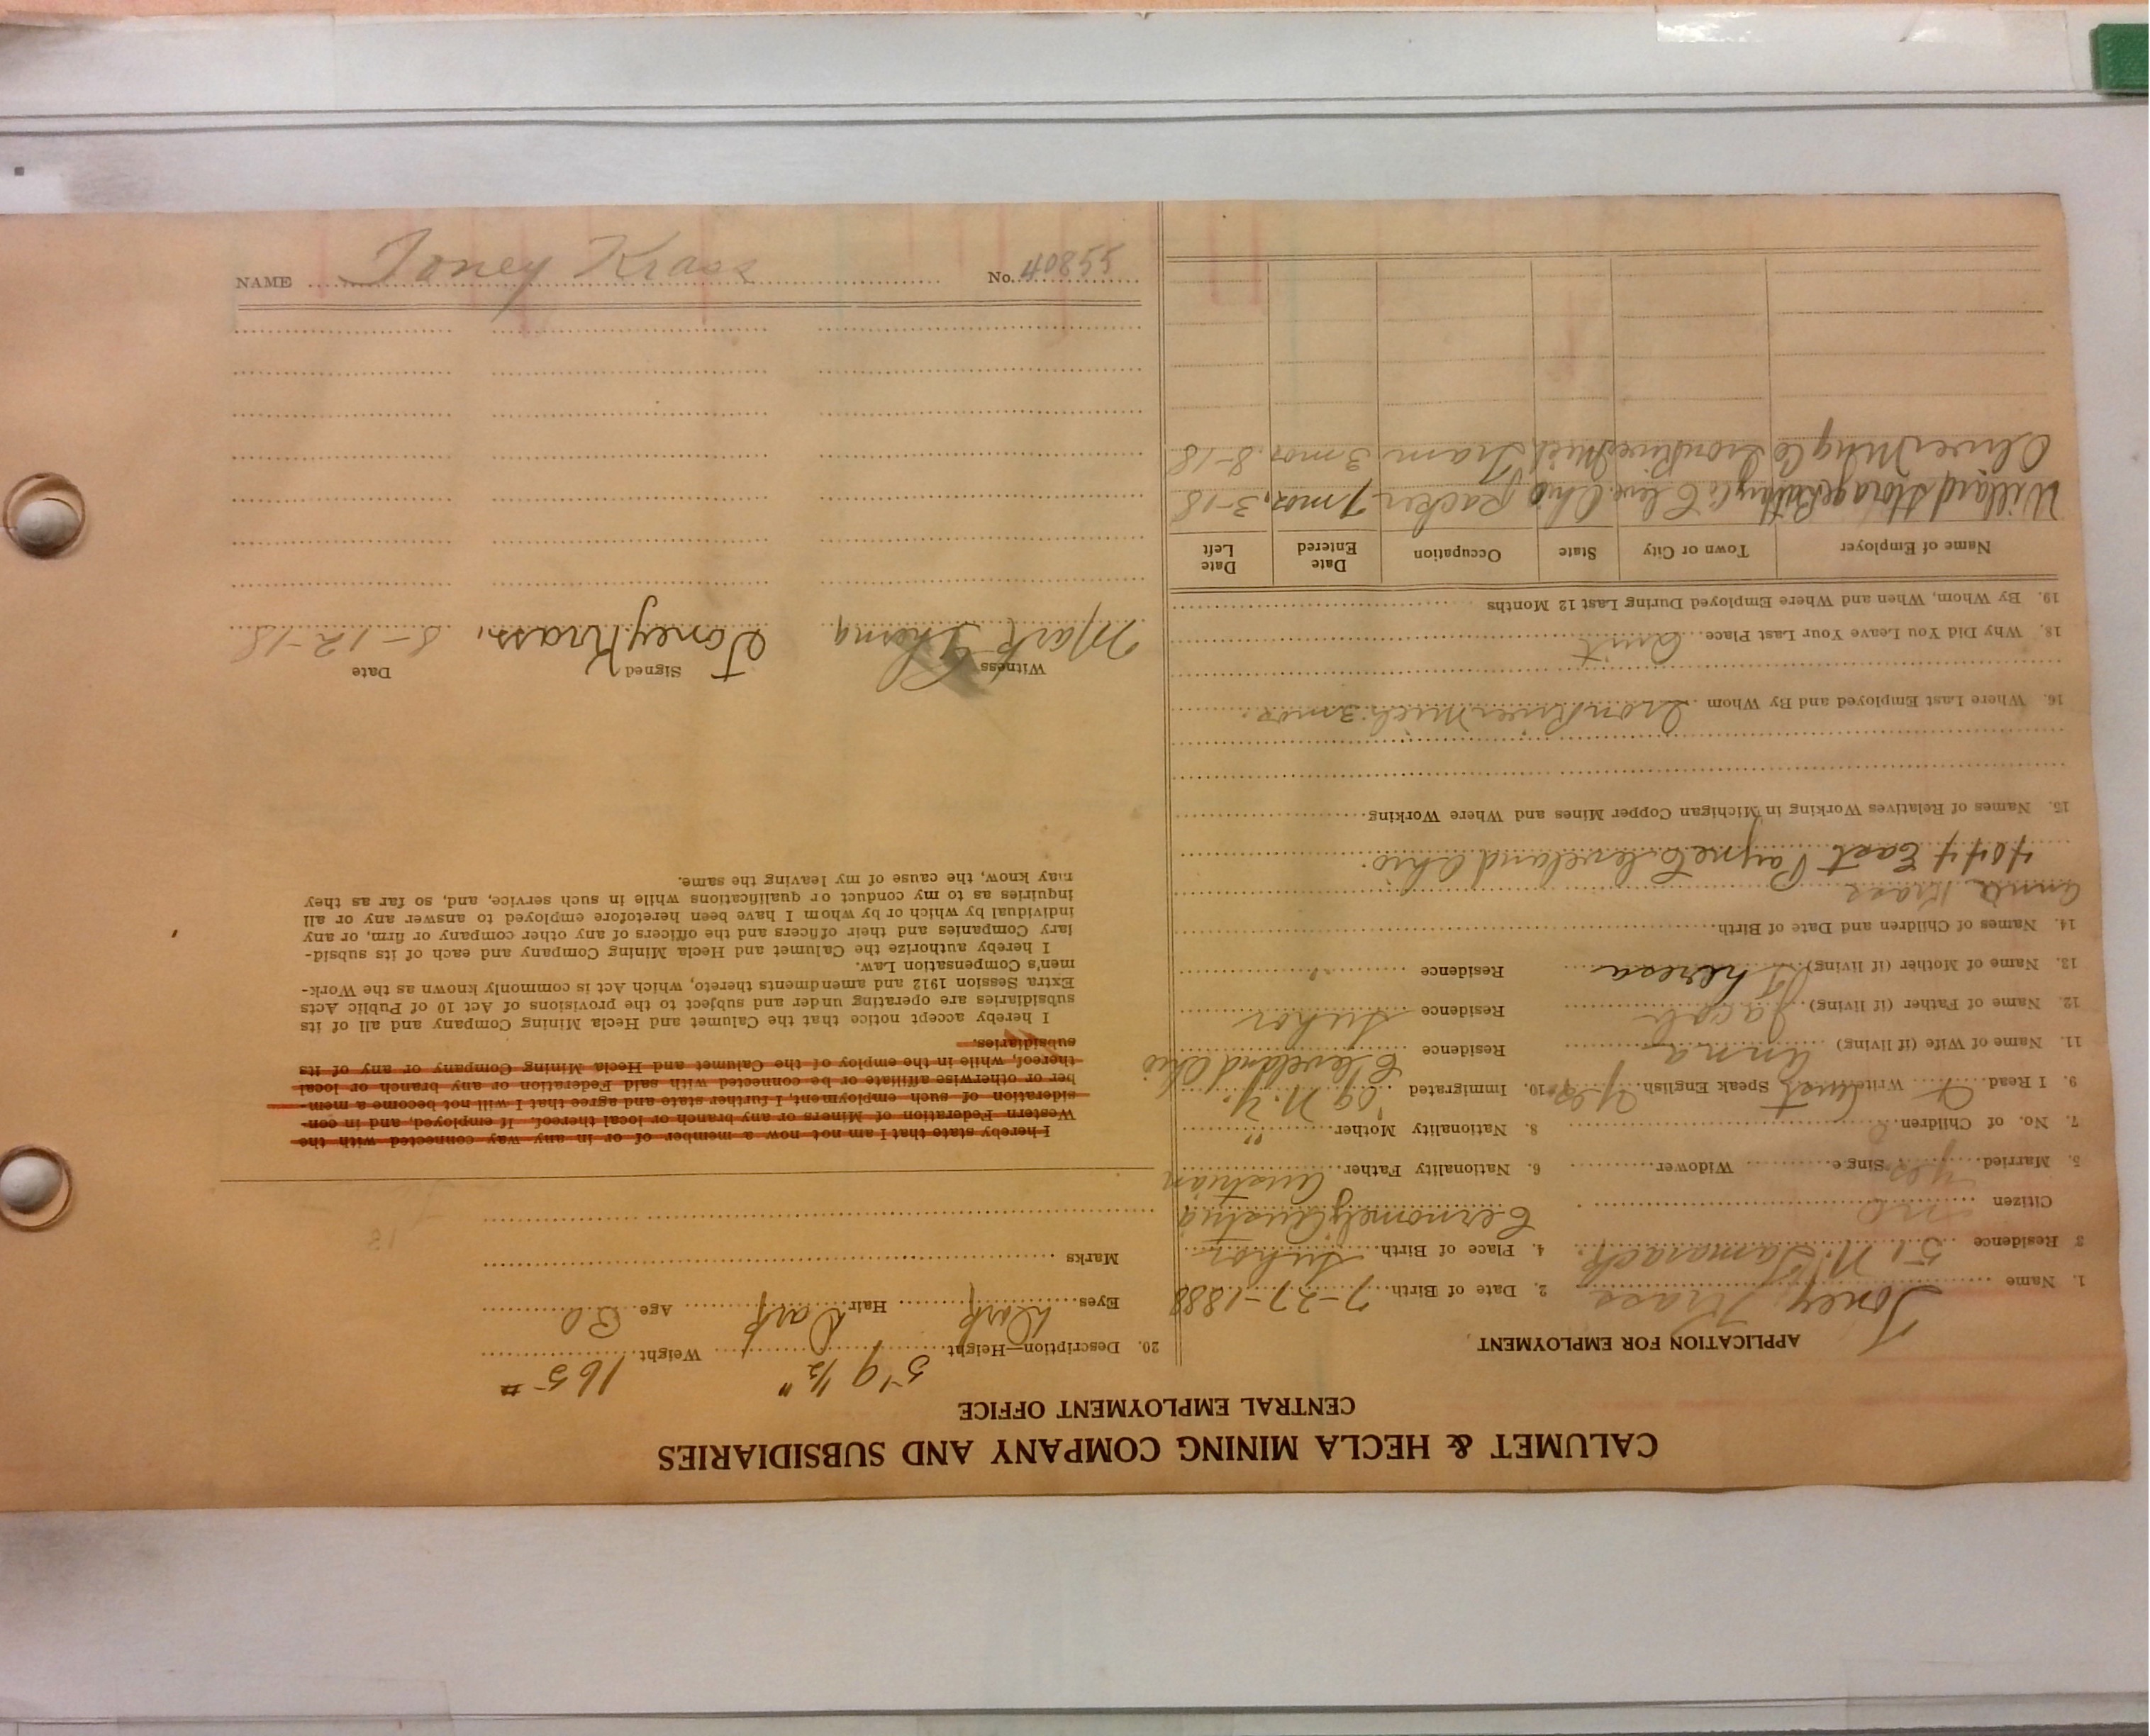 CALUMET & HECLA MINING COMPANY AND SUBSIDIARIES
CENTRAL EMPLOYMENT OFFICE
APPLICATION FOR EMPLOYMENT
1. Name Toney Krass 2. Date of Birth 7-27-1888
3 Residence 51 N. Tamarack. 4. Place of Birth Suhor
Citizen no Cernomely Austria
5. Married yes Single Widower 6. Nationality Father Austrian
7. No. of Children 8. Nationality Mother "
9. I Read Write Aust Speak English yes 10. Immigrated '09 N.Y.
11. Name of Wife (if living) Anna Residence Cleveland Ohio
12. Name of Father (if living) Jacob Residence Suhor
13. Name of Mother (if living) Theresa Residence "
14. Names of Children and Date of Birth
Anna Krass
4044 East Payne Cleveland Ohio.
15. Names of Relatives Working in Michigan Copper Mines and Where Working
16. Where Last Employed and By Whom Iron River Mich. 3 mos.
18. Why Did You Leave Your Last Place Quit
19. By Whom, When and Where Employed During Last 12 Months
Name of Employer Town or City State Occupation Date Entered Date Left
Willard Storage Battery Co Cleve. Ohio Packer 7 mos. 3-18
Oliver Mng Co Iron River Mich. Tram 3 mos. 8-18
20. Description—Height 5' 9 1/2" Weight 165 #
Eyes Dark Hair Dark Age 30
Marks
I hereby state that I am not now a member of or in any way connected with the
Western Federation of Miners or any branch or local thereof. If employed, and in con-
sideration of such employment, I further state and agree that I will not become a mem-
ber or otherwise affiliate or be connected with said Federation or any branch or local
thereof, while in the employ of the Calumet and Hecla Mining Company or any of its
subsidiaries.
I hereby accept notice that the Calumet and Hecla Mining Company and all of its
subsidiaries are operating under and subject to the provisions of Act 10 of Public Acts
Extra Session 1912 and amendments thereto, which Act is commonly known as the Work-
men's Compensation Law.
I hereby authorize the Calumet and Hecla Mining Company and each of its subsid-
iary Companies and their officers and the officers of any other company or firm, or any
individual by which or by whom I have been heretofore employed to answer any or all
inquiries as to my conduct or qualifications while in such service, and, so far as they
may know, the cause of my leaving the same.
Witness Signed Date
Mark Toney Krass. 8-12-18
NAME Toney Krass No. 40855